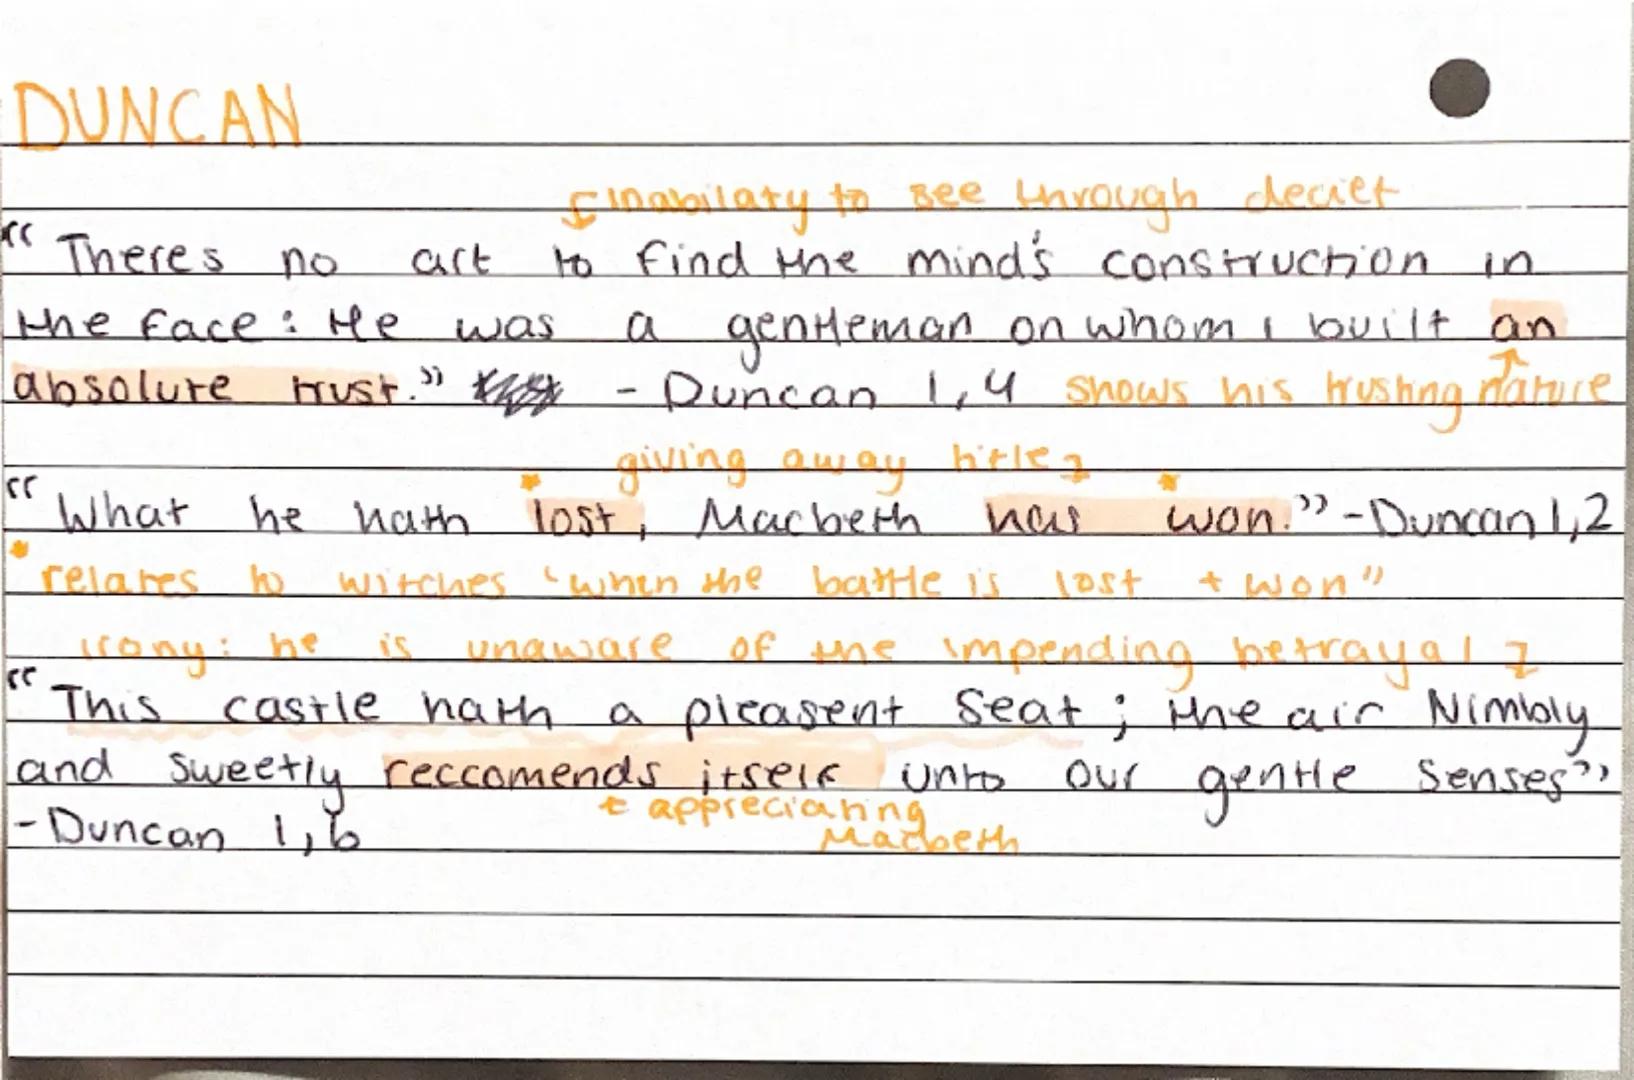 DUNCAN
inabilaty to see through deciet
"Theres no art to find the mind's construction in
the face: He was a gentleman on whom i built an
absolute trust." - Duncan 1,4 shows his trusting nature
giving away title
"What he hath lost, Macbeth has won." -Duncan 1,2
* relates to witches "when the battle is lost + won"
irony: he is unaware of the impending betrayal
"This castle hath a pleasent seat; the air Nimbly
and sweetly reccomends itself unto our gentle senses"
-Duncan 1,6
+ appreciating
Macbeth